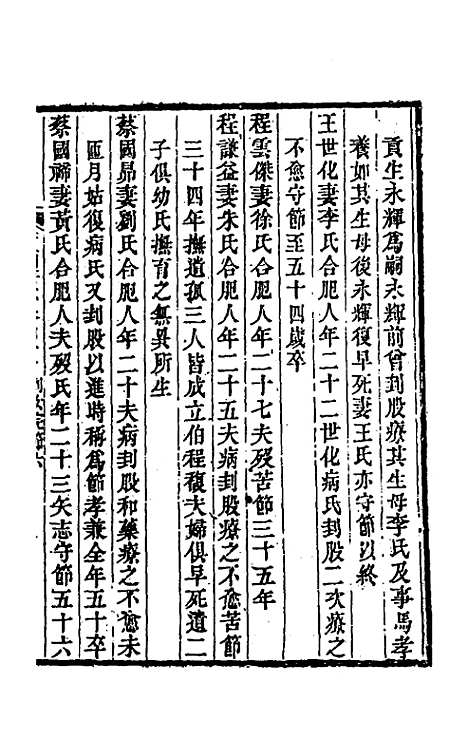 貢生永輝爲嗣永輝前曾刲股療其生母李氏及事馬孝
養如其生母後永輝復早死妻王氏亦守節以終
王世化妻李氏合肥人年二十二世化病氏刲股二次療之
不愈守節至五十四歲卒
程雲傑妻徐氏合肥人年二十七夫歿苦節三十五年
程謙益妻朱氏合肥人年二十五夫病刲股療之不愈苦節
三十四年撫遺孤三人皆成立伯程馥夫婦俱早死遺二
子俱幼氏撫育之無異所生
蔡國昴妻劉氏合肥人年二十夫病刲股和藥療之不愈未
匝月姑復病氏又刲股以進時稱爲節孝兼全年五十卒
蔡國禘妻黃氏合肥人夫歿氏年二十三矢志守節五十六